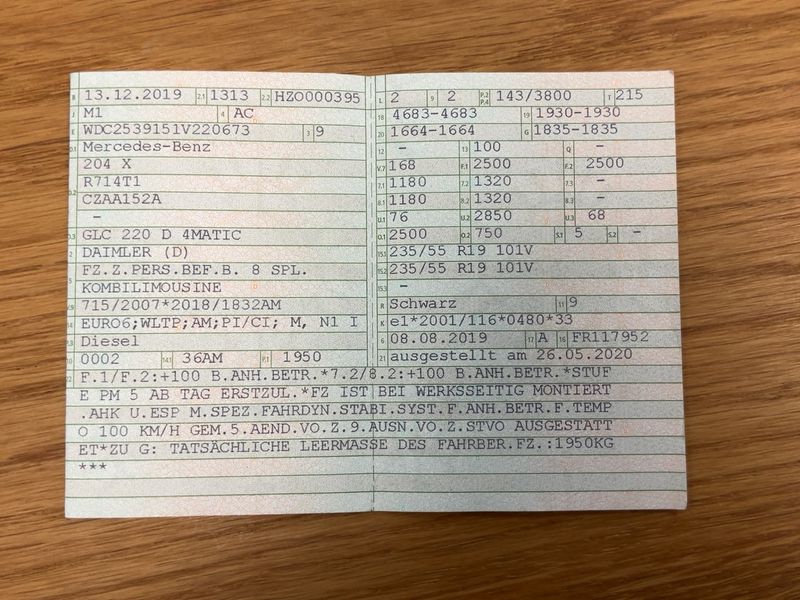 B 13.12.2019 2.1 1313 2.2 HZO000395
J M1 4 AC
E WDC2539151V220673 3 9
D.1 Mercedes-Benz
204 X
D.2 R714T1
CZAA152A
-
D.3 GLC 220 D 4MATIC
2 DAIMLER (D)
5 FZ.Z.PERS.BEF.B. 8 SPL.
KOMBILIMOUSINE
V.9 715/2007*2018/1832AM
14 EURO6;WLTP;AM;PI/CI; M, N1 I
P.3 Diesel
10 0002 14.1 36AM P.1 1950
L 2 9 2 P.2 P.4 143/3800 T 215
18 4683-4683 19 1930-1930
20 1664-1664 G 1835-1835
12 - 13 100 Q -
V.7 168 F.1 2500 F.2 2500
7.1 1180 7.2 1320 7.3 -
8.1 1180 8.2 1320 8.3 -
U.1 76 U.2 2850 U.3 68
O.1 2500 O.2 750 S.1 5 S.2 -
15.1 235/55 R19 101V
15.2 235/55 R19 101V
15.3 -
R Schwarz 11 9
K e1*2001/116*0480*33
6 08.08.2019 17 A 16 FR117952
21 ausgestellt am 26.05.2020
22 F.1/F.2:+100 B.ANH.BETR.*7.2/8.2:+100 B.ANH.BETR.*STUF
E PM 5 AB TAG ERSTZUL.*FZ IST BEI WERKSSEITIG MONTIERT
.AHK U.ESP M.SPEZ.FAHRDYN.STABI.SYST.F.ANH.BETR.F.TEMP
O 100 KM/H GEM.5.AEND.VO.Z.9.AUSN.VO.Z.STVO AUSGESTATT
ET*ZU G: TATSÄCHLICHE LEERMASSE DES FAHRBER.FZ.:1950KG
***